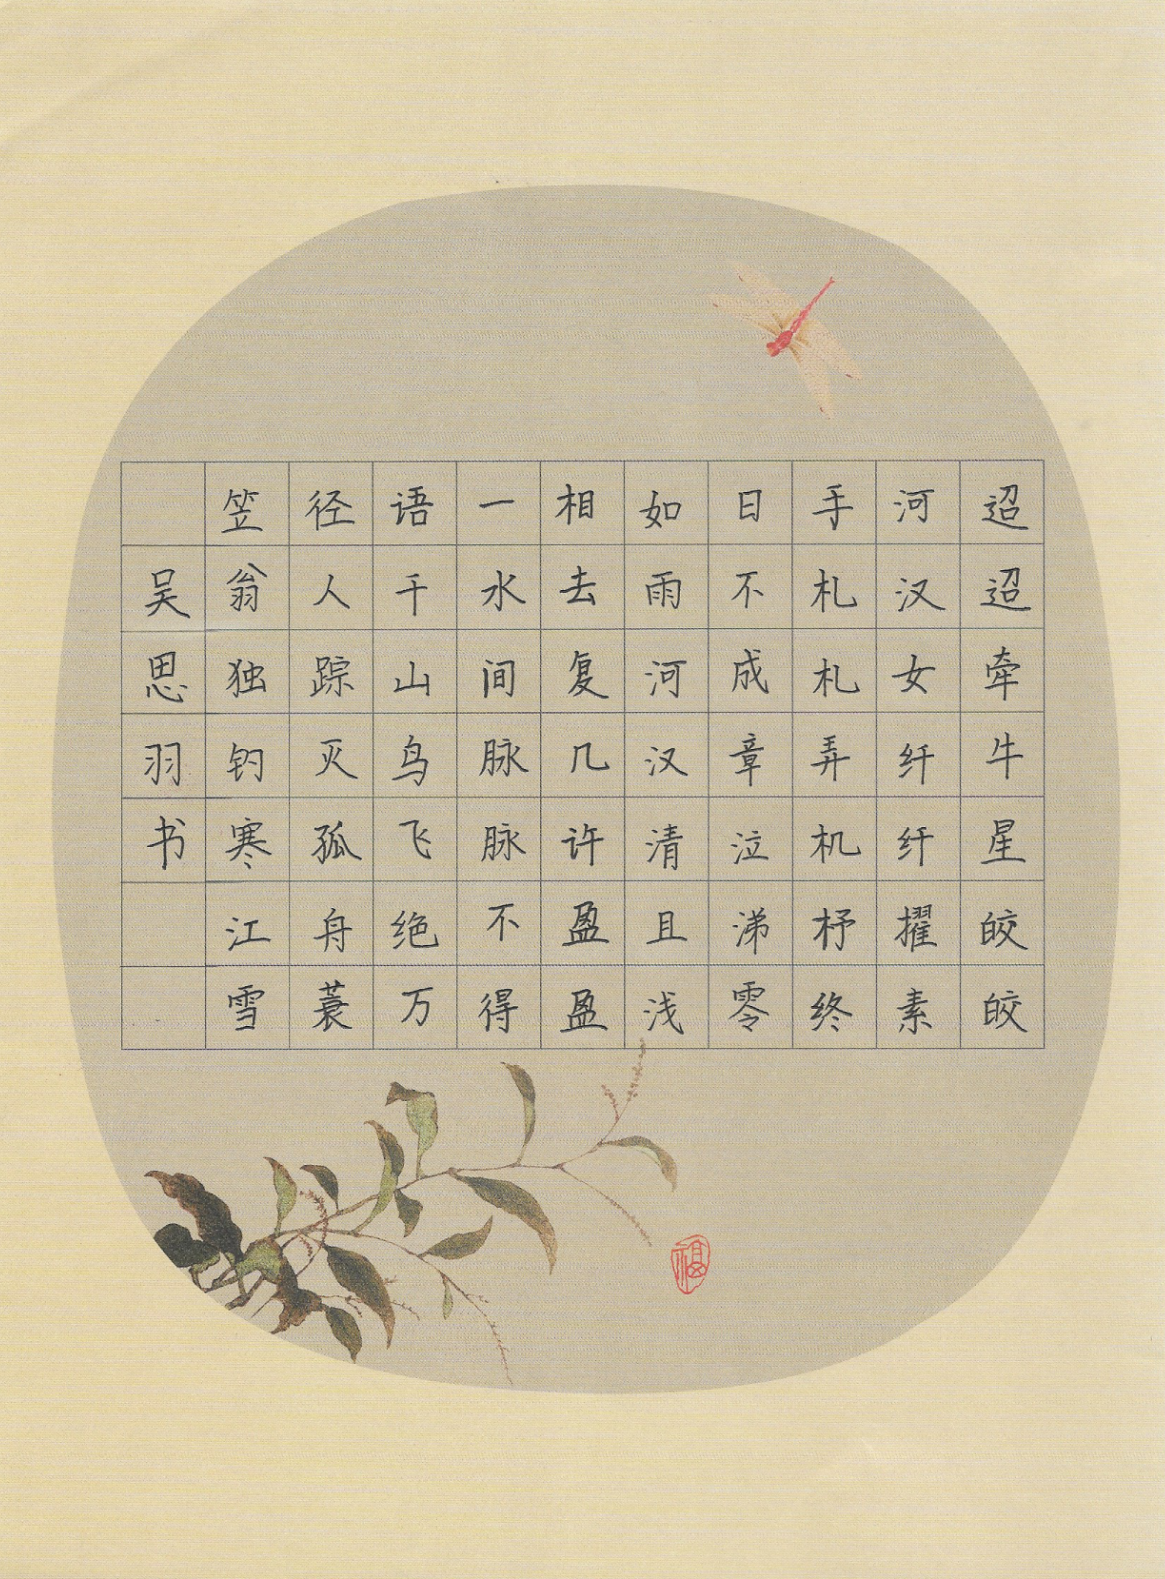 迢迢牵牛星皎皎
河汉女纤纤擢素
手札札弄机杼终
日不成章泣涕零
如雨河汉清且浅
相去复几许盈盈
一水间脉脉不得
语千山鸟飞绝万
径人踪灭孤舟蓑
笠翁独钓寒江雪
吴思羽书
福